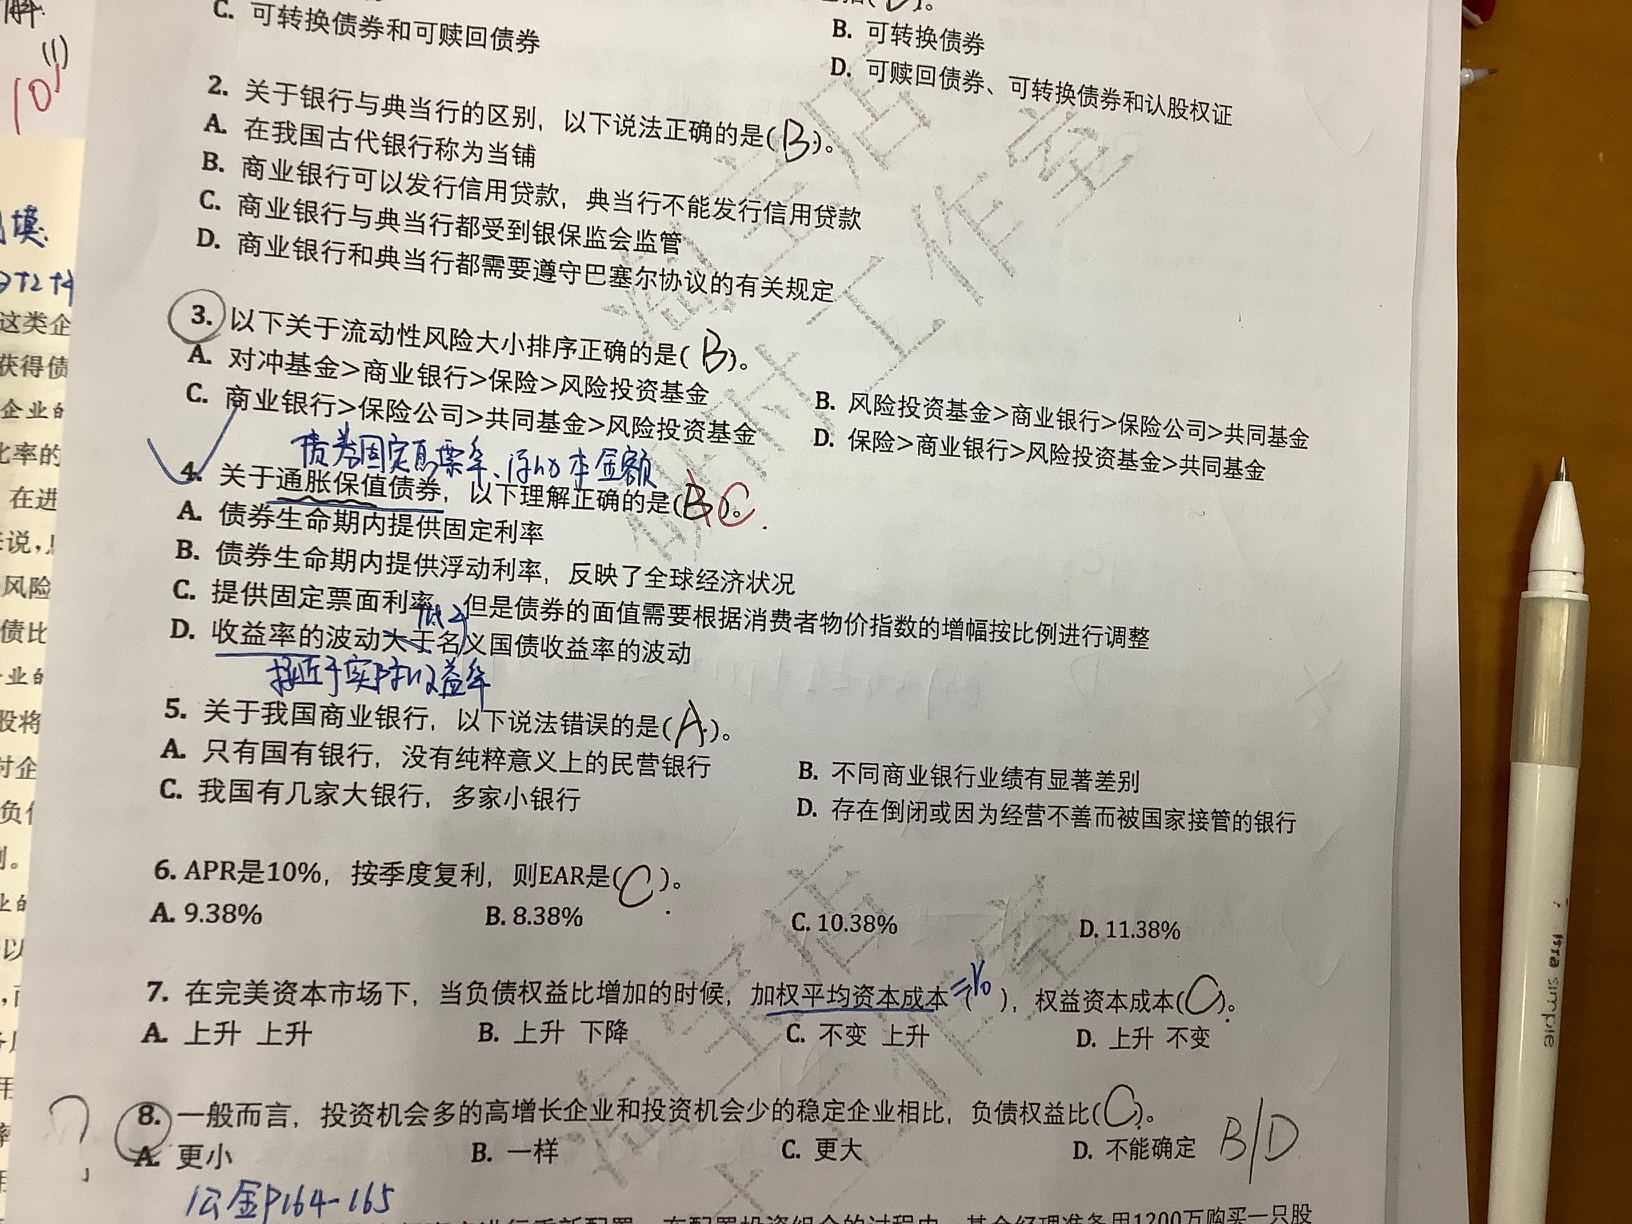 解
10
(1)
C. 可转换债券和可赎回债券
B. 可转换债券
D. 可赎回债券、可转换债券和认股权证
2. 关于银行与典当行的区别，以下说法正确的是(B)。
A. 在我国古代银行称为当铺
B. 商业银行可以发行信用贷款，典当行不能发行信用贷款
C. 商业银行与典当行都受到银保监会监管
D. 商业银行和典当行都需要遵守巴塞尔协议的有关规定
3. 以下关于流动性风险大小排序正确的是(B)。
A. 对冲基金>商业银行>保险>风险投资基金
B. 风险投资基金>商业银行>保险公司>共同基金
C. 商业银行>保险公司>共同基金>风险投资基金
D. 保险>商业银行>风险投资基金>共同基金
债券固定息票率、浮动本金额
4. 关于通胀保值债券，以下理解正确的是(B)。C.
A. 债券生命期内提供固定利率
B. 债券生命期内提供浮动利率，反映了全球经济状况
C. 提供固定票面利率，但是债券的面值需要根据消费者物价指数的增幅按比例进行调整
低于
D. 收益率的波动大于名义国债收益率的波动
接近于实际收益率
5. 关于我国商业银行，以下说法错误的是(A)。
A. 只有国有银行，没有纯粹意义上的民营银行
B. 不同商业银行业绩有显著差别
C. 我国有几家大银行，多家小银行
D. 存在倒闭或因为经营不善而被国家接管的银行
6. APR是10%，按季度复利，则EAR是(C)。
A. 9.38%
B. 8.38%
C. 10.38%
D. 11.38%
7. 在完美资本市场下，当负债权益比增加的时候，加权平均资本成本( )，权益资本成本(C)。
A. 上升 上升
B. 上升 下降
C. 不变 上升
D. 上升 不变
8. 一般而言，投资机会多的高增长企业和投资机会少的稳定企业相比，负债权益比(C)。
A. 更小
B. 一样
C. 更大
D. 不能确定
B/D
?
公金P164-165
1200万购买一只股
淘宝店
工作室
淘宝店
工作室
这类企
获得债
企业的
比率的
在进
来说，
风险
债比
业的
股将
对企
负债
业的
以
itta simple